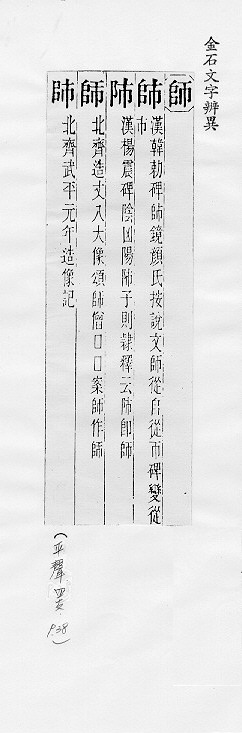 金石文字辨異
師
師 漢韓勅碑師鏡顏氏按說文師從𠂤從帀碑變從
市
䧂 漢楊震碑陰䧂陽䧂子則隸釋云䧂即師
師 北齊造丈八大像頌師僧□□案師作師
師 北齊武平元年造像記
(平聲 四支 P.38)